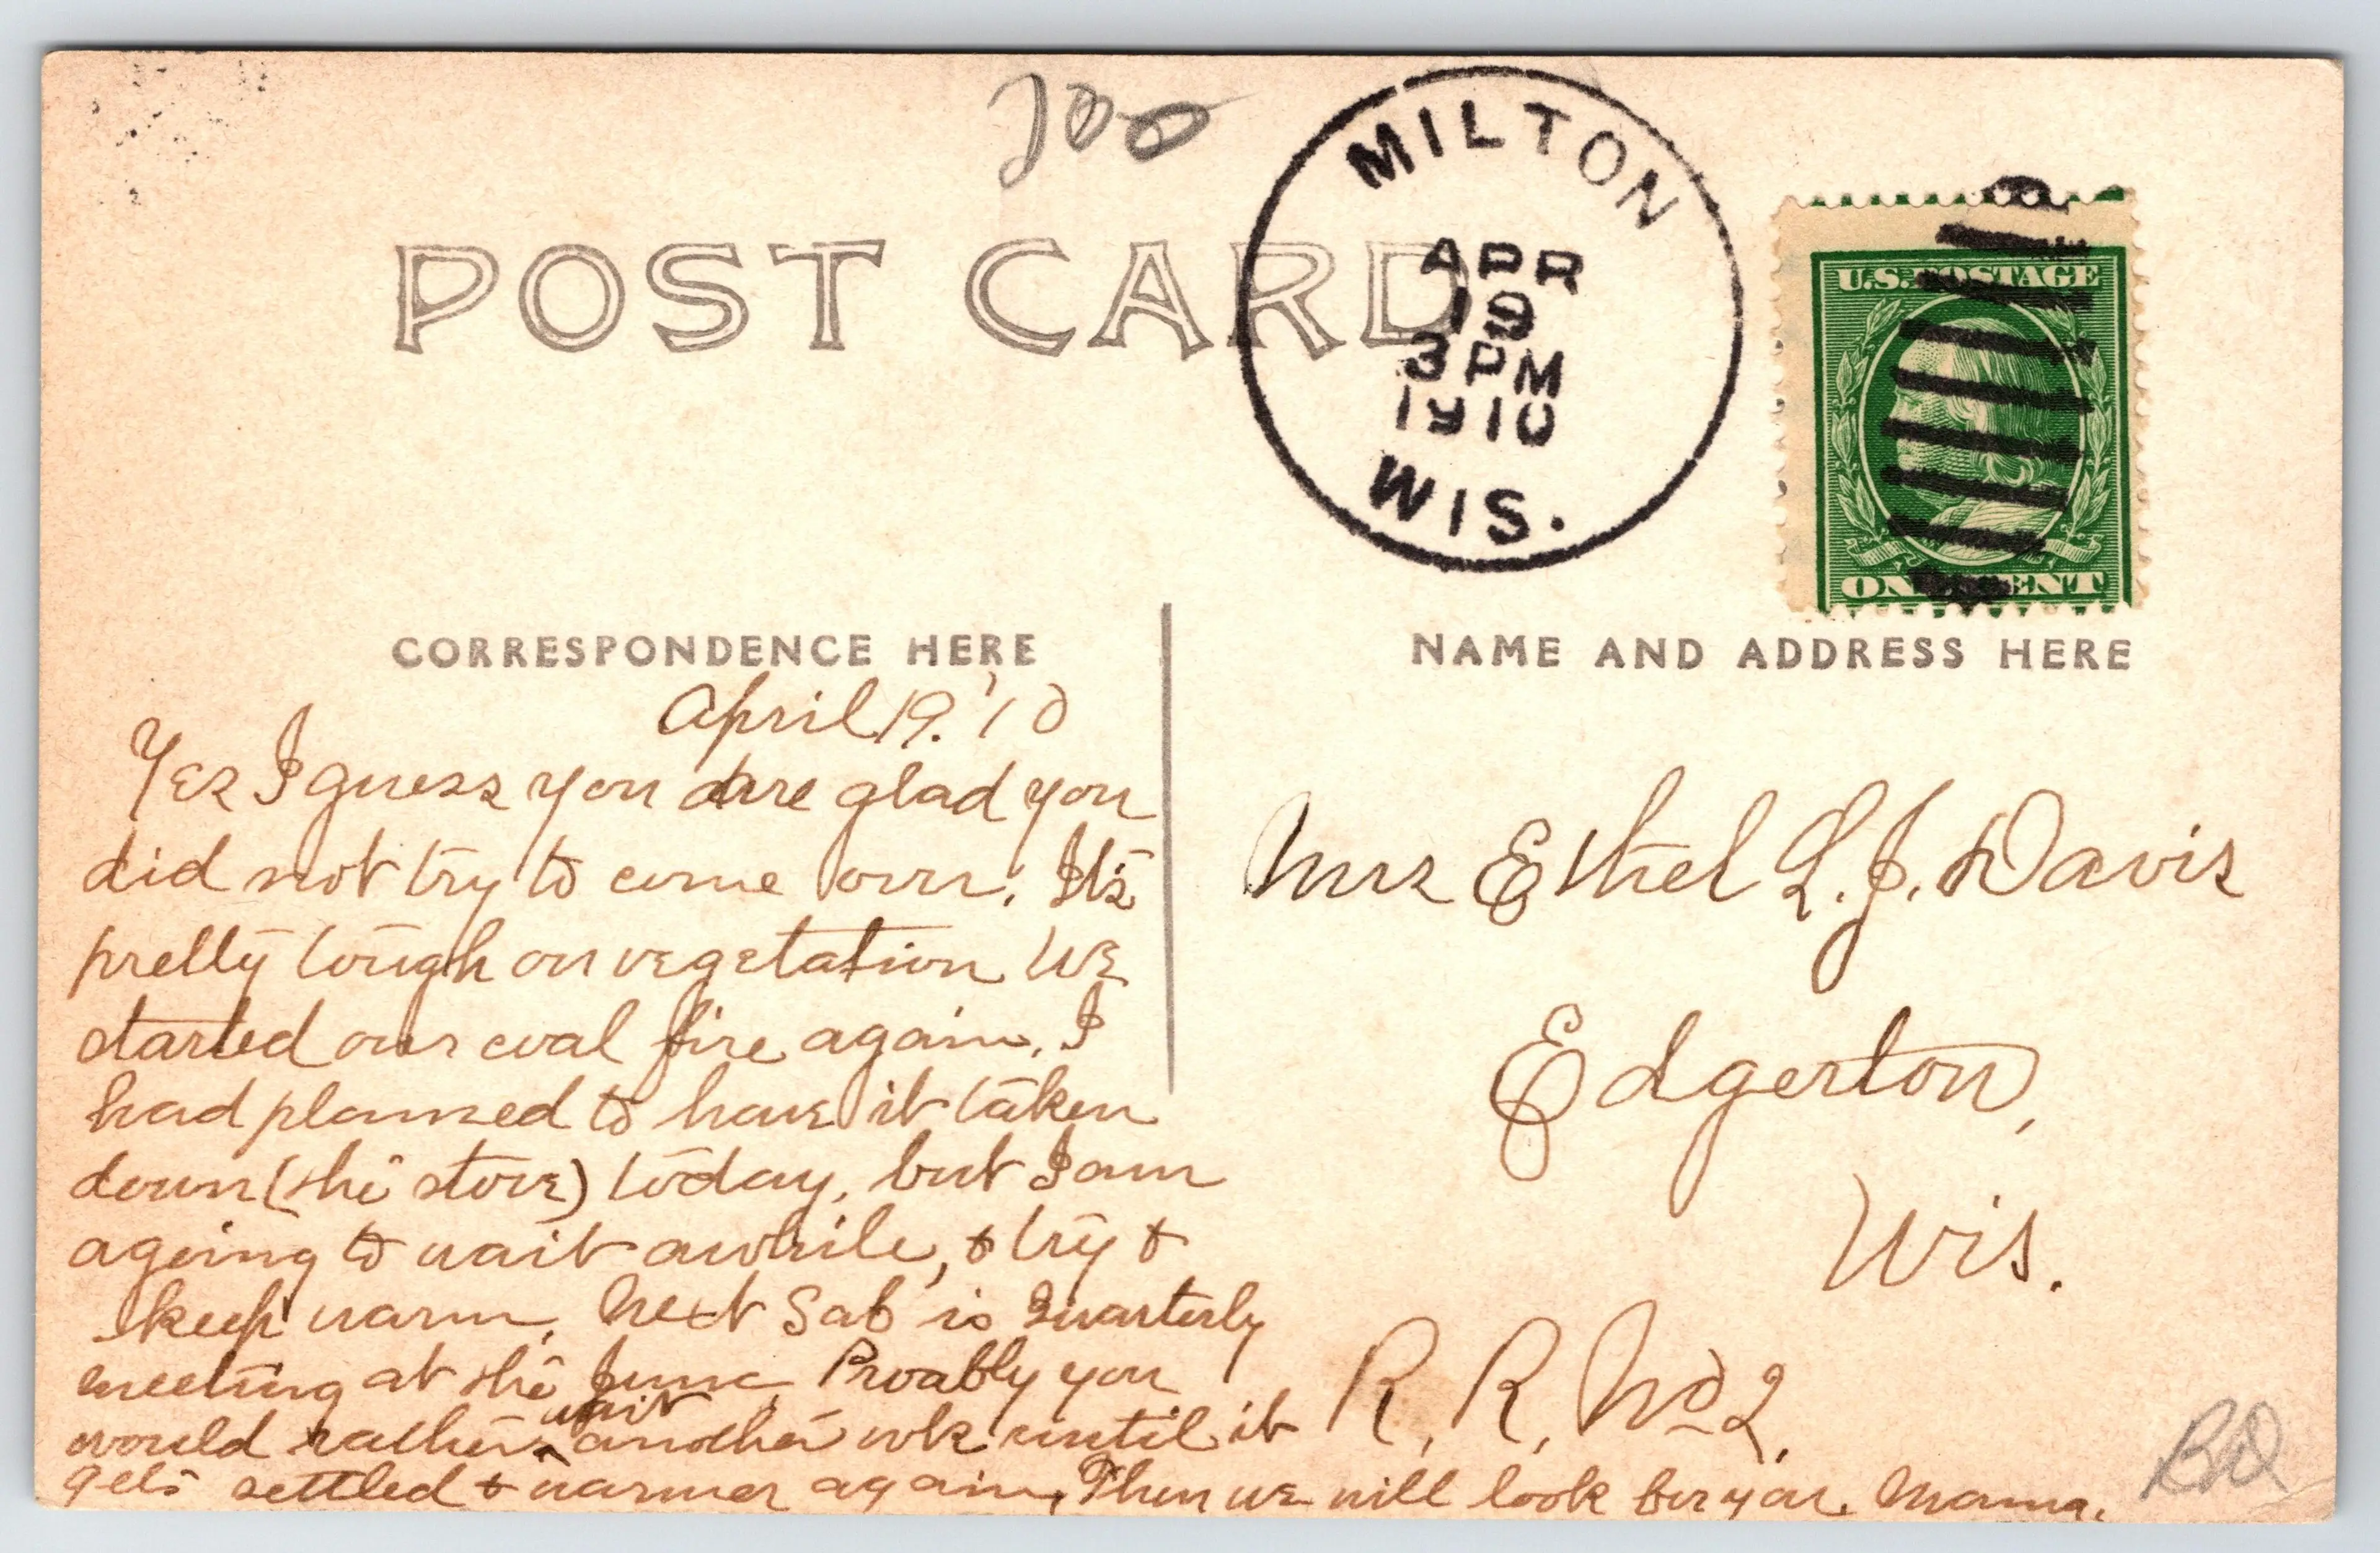 700
MILTON
APR
19
3 PM
1910
WIS.
U.S. POSTAGE
ONE CENT
POST CARD
CORRESPONDENCE HERE
April 19. '10
Yes I guess you are glad you
did not try to come over. It's
pretty tough on vegetation We
started our coal fire again. I
had planned to have it taken
down (the stove) today, but I am
agoing to wait awhile, & try &
keep warm. Next Sab is Quarterly
meeting at the Junc. Proably you
would rather wait another wk until it
gets settled & warmer again, Then we will look for you. Mama.
NAME AND ADDRESS HERE
Mrs Ethel L. J. Davis
Edgerton,
Wis.
R. R. No 2.